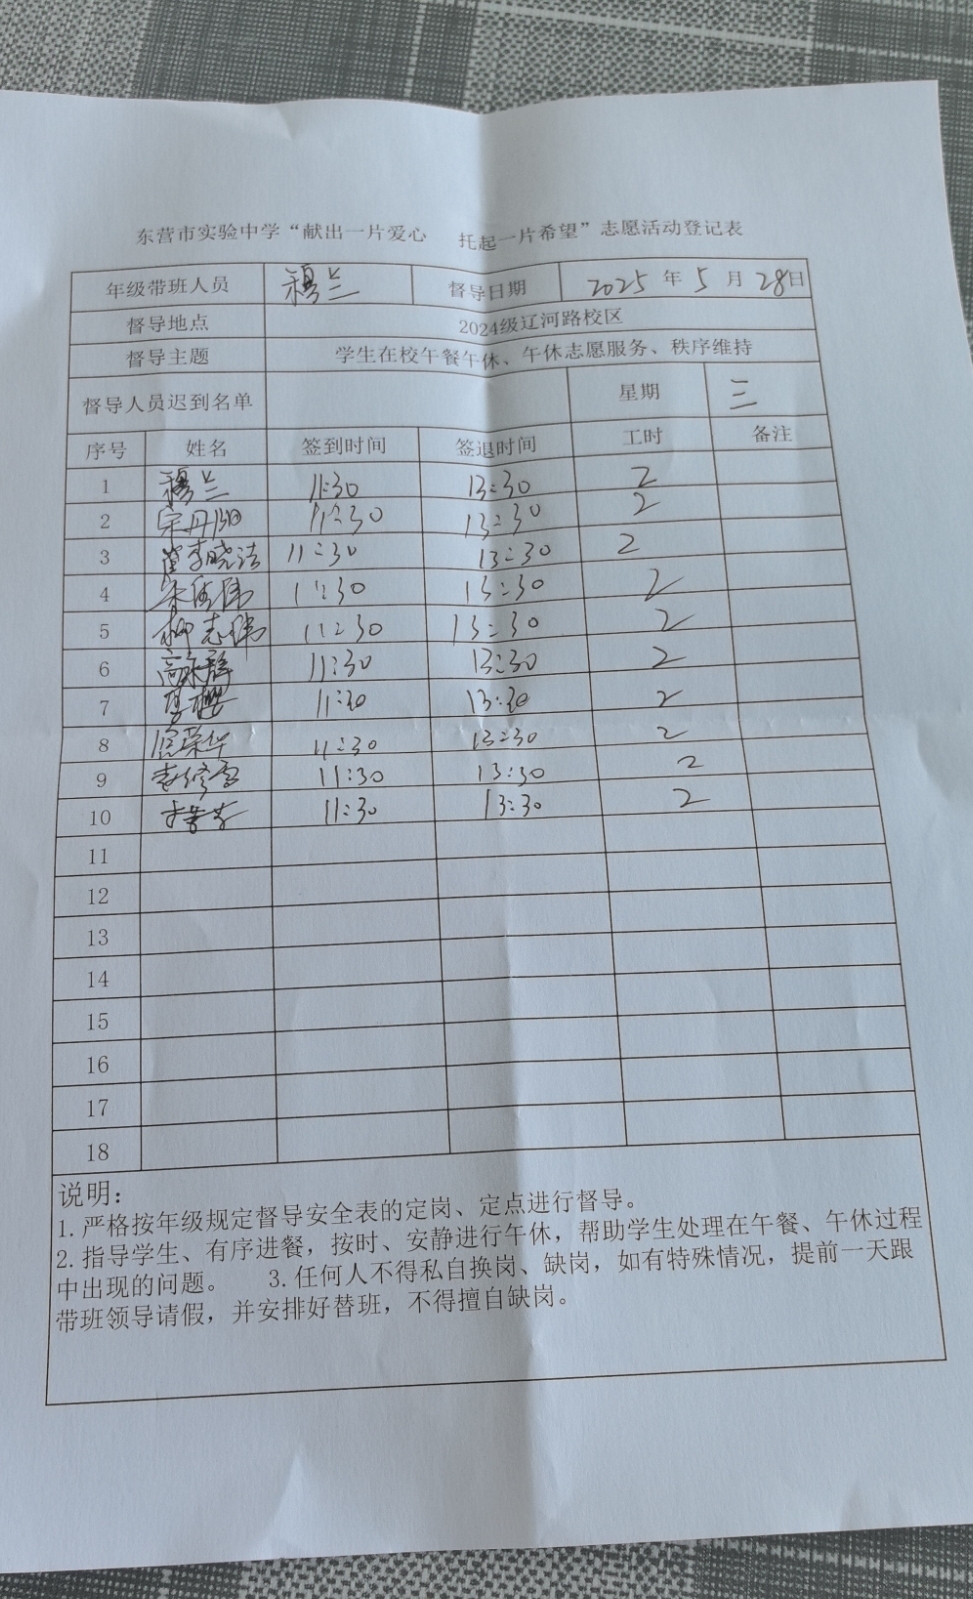 东营市实验中学“献出一片爱心 托起一片希望”志愿活动登记表
年级带班人员 穆兰 督导日期 2025 年 5 月 28日
督导地点 2024级辽河路校区
督导主题 学生在校午餐午休、午休志愿服务、秩序维持
督导人员迟到名单 星期 三
序号 姓名 签到时间 签退时间 工时 备注
1 穆兰 11:30 13:30 2
2 宋丹阳 11:30 13:30 2
3 李晓洁 11:30 13:30 2
4 11:30 13:30 2
5 柳志强 11:30 13:30 2
6 11:30 13:30 2
7 李樱 11:30 13:30 2
8 荣华 11:30 13:30 2
9 11:30 13:30 2
10 11:30 13:30 2
11
12
13
14
15
16
17
18
说明：
1.严格按年级规定督导安全表的定岗、定点进行督导。
2.指导学生、有序进餐，按时、安静进行午休，帮助学生处理在午餐、午休过程
中出现的问题。 3.任何人不得私自换岗、缺岗，如有特殊情况，提前一天跟
带班领导请假，并安排好替班，不得擅自缺岗。